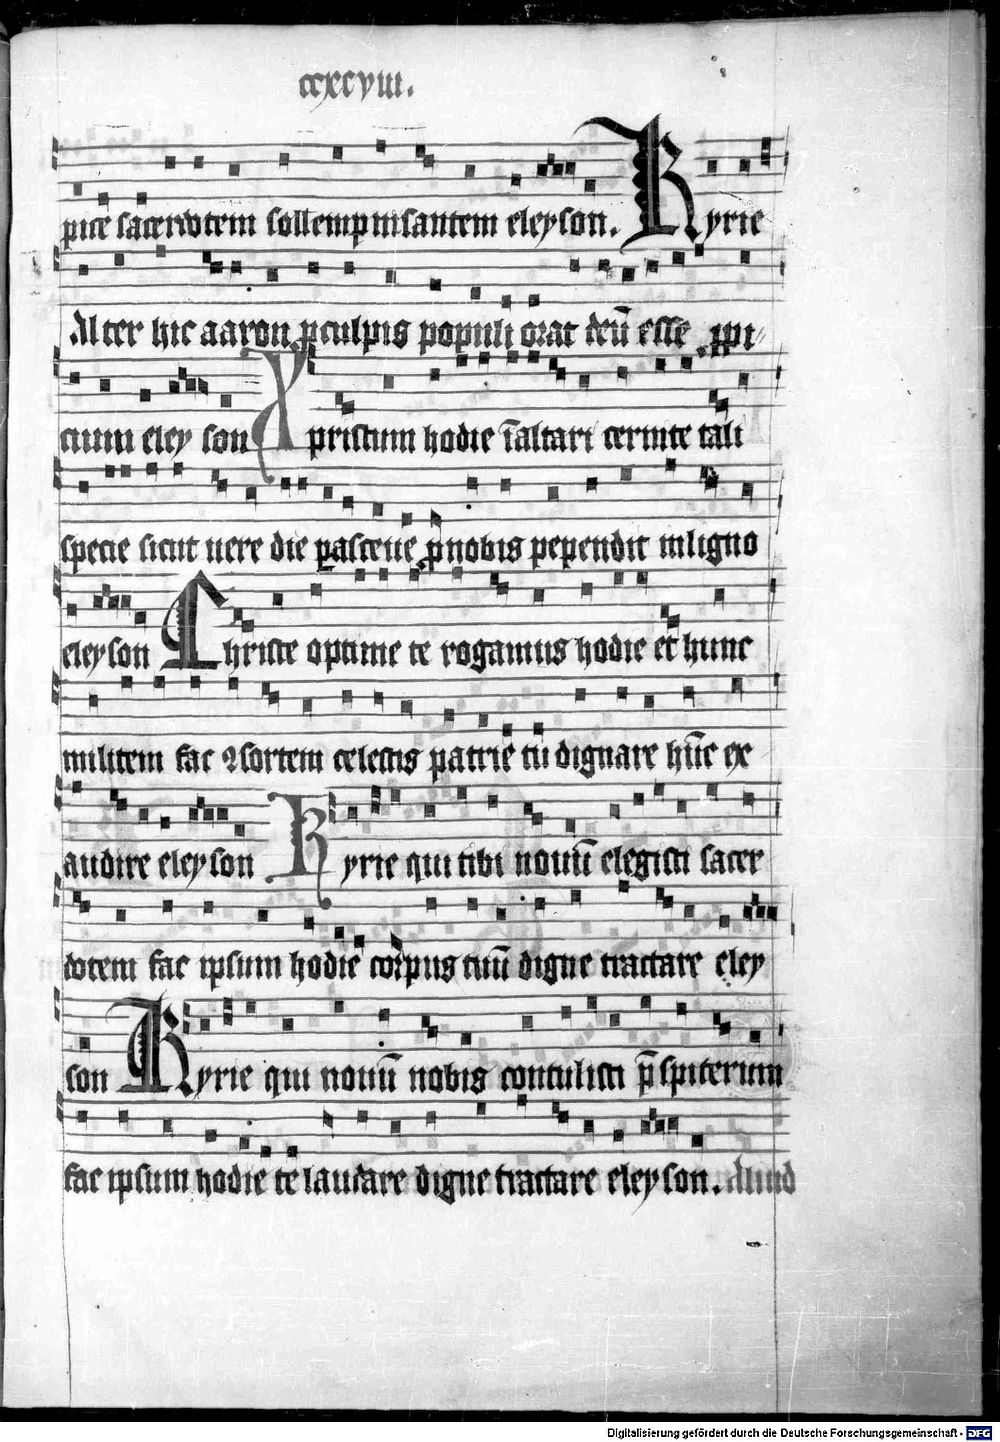 ccxcviii.
pice sacerdotem sollempnisantem eleyson. Kyrie
Alter hic aaron ꝓculpis populi orat deū esse ꝓpi
cium eley son Xpristum hodie ī altari cernite tali
specie sicut uere die pasceue ꝓnobis pependit inligno
eleyson Christe optime te rogamus hodie et hunc
militem fac ꝯsortem celestis patrie tu dignare hūc ex
audire eleyson Kyrie qui tibi nouū elegisti sacer
dotem fac ipsum hodie corpus tuū digne tractare eley
son Kyrie qui nouū nobis contulisti p̄spiterum
fac ipsum hodie te laudare digne tractare eleyson. Aliud
Digitalisierung gefördert durch die Deutsche Forschungsgemeinschaft - DFG